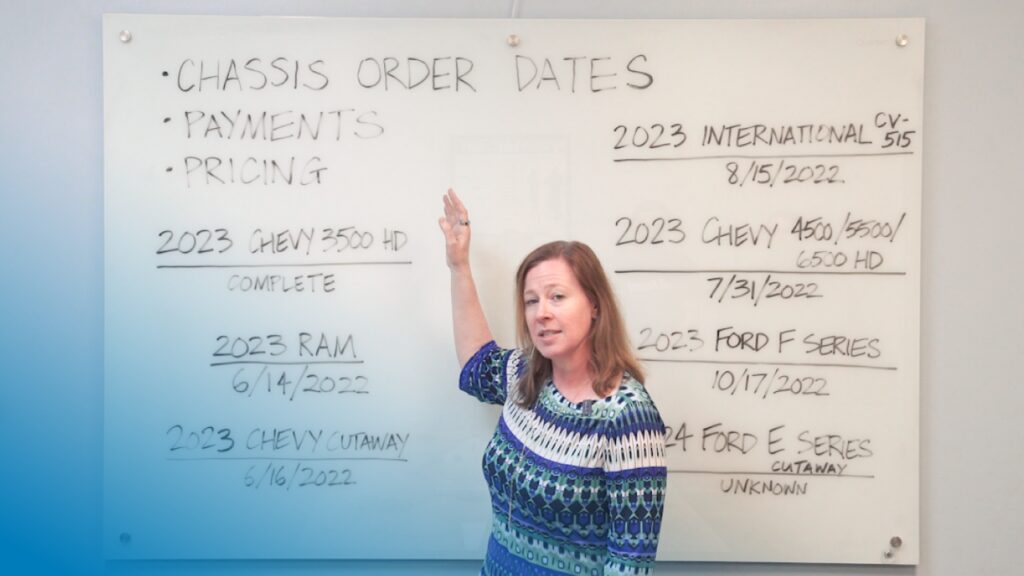 • CHASSIS ORDER DATES
• PAYMENTS
• PRICING
2023 CHEVY 3500 HD
COMPLETE
2023 RAM
6/14/2022
2023 CHEVY CUTAWAY
6/16/2022
2023 INTERNATIONAL CV-
515
8/15/2022
2023 CHEVY 4500/5500/
6500 HD
7/31/2022
2023 FORD F SERIES
10/17/2022
24 FORD E SERIES
CUTAWAY
UNKNOWN